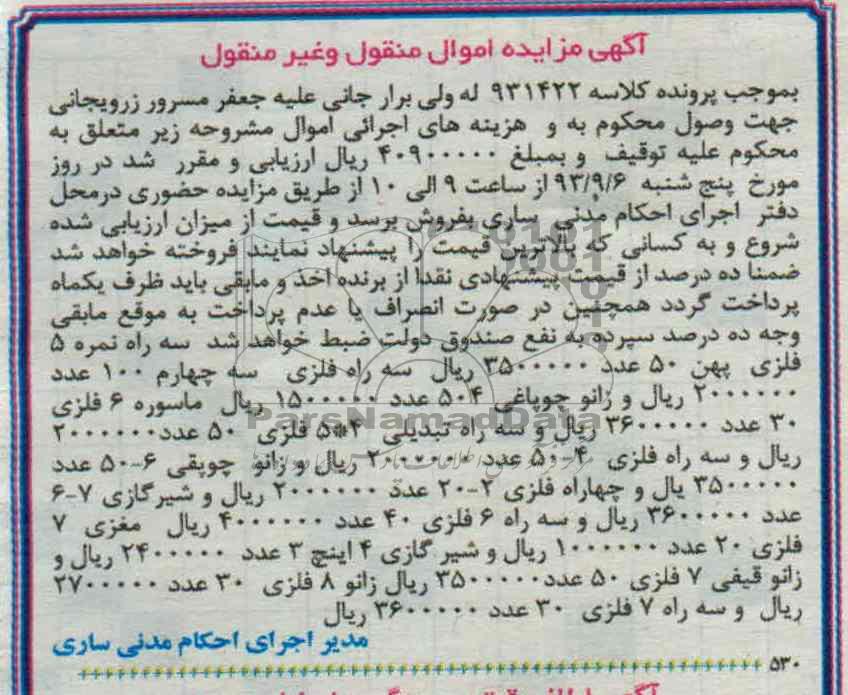 آگهی مزایده اموال منقول وغیر منقول
بموجب پرونده کلاسه ۹۳۱۴۲۲ له ولی برار جانی علیه جعفر مسرور زرویجانی
جهت وصول محکوم به و هزینه های اجرائی اموال مشروحه زیر متعلق به
محکوم علیه توقیف و بمبلغ ۴۰۹۰۰۰۰۰ ریال ارزیابی و مقرر شد در روز
مورخ پنج شنبه ۹۳/۹/۶ از ساعت ۹ الی ۱۰ از طریق مزایده حضوری درمحل
دفتر اجرای احکام مدنی ساری بفروش برسد و قیمت از میزان ارزیابی شده
شروع و به کسانی که بالاترین قیمت را پیشنهاد نمایند فروخته خواهد شد
ضمنا ده درصد از قیمت پیشنهادی نقدا از برنده اخذ و مابقی باید ظرف یکماه
پرداخت گردد همچنین در صورت انصراف یا عدم پرداخت به موقع مابقی
وجه ده درصد سپرده به نفع صندوق دولت ضبط خواهد شد سه راه نمره ۵
فلزی پهن ۵۰ عدد ۳۵۰۰۰۰۰ ریال سه راه فلزی سه چهارم ۱۰۰ عدد
۲۰۰۰۰۰۰ ریال و زانو چوپاغی ۴-۵۰ عدد ۱۵۰۰۰۰۰ ریال ماسوره ۶ فلزی
۳۰ عدد ۳۶۰۰۰۰۰ ریال و سه راه تبدیلی ۴*۵ فلزی ۵۰ عدد ۲۰۰۰۰۰۰
ریال و سه راه فلزی ۴-۵۰ عدد ۲۰۰۰۰۰۰ ریال و زانو چوپقی ۶-۵۰ عدد
۳۵۰۰۰۰۰ یال و چهاراه فلزی ۲-۲۰ عدد ۲۰۰۰۰۰۰ ریال و شیرگازی ۷-۶
عدد ۳۶۰۰۰۰۰ ریال و سه راه ۶ فلزی ۴۰ عدد ۴۰۰۰۰۰۰ ریال مغزی ۷
فلزی ۲۰ عدد ۱۰۰۰۰۰۰ ریال و شیر گازی ۴ اینچ ۳ عدد ۲۴۰۰۰۰۰ ریال و
زانو قیفی ۷ فلزی ۵۰ عدد ۳۵۰۰۰۰۰ ریال زانو ۸ فلزی ۳۰ عدد ۲۷۰۰۰۰۰
ریال و سه راه ۷ فلزی ۳۰ عدد ۳۶۰۰۰۰۰ ریال
مدیر اجرای احکام مدنی ساری
۵۳۰
ParsNamadData